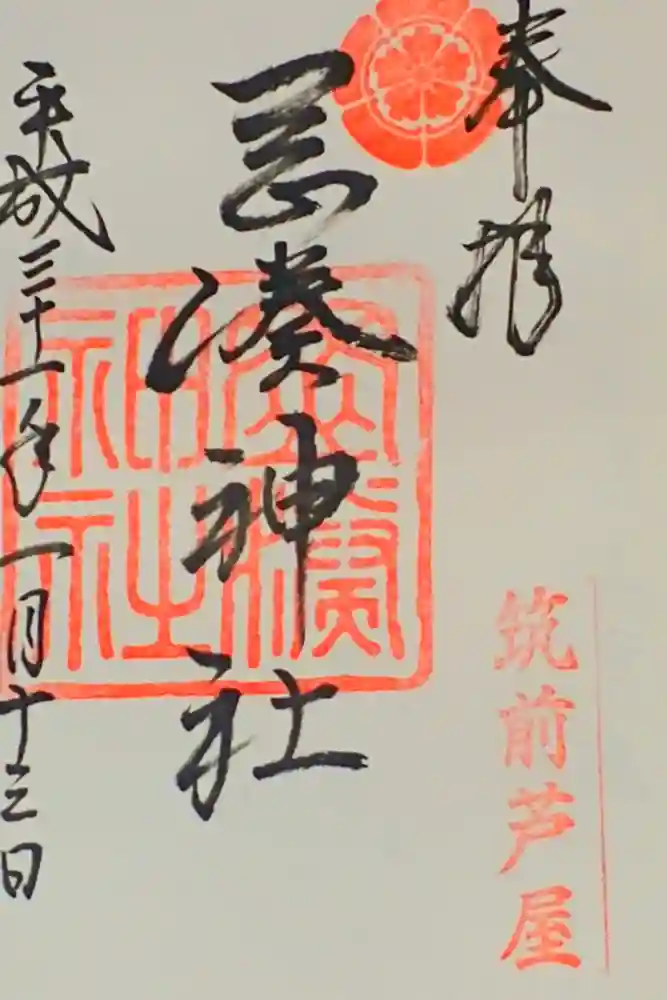 奉拝
筑前芦屋
岡湊神社
平成三十一年一月十三日